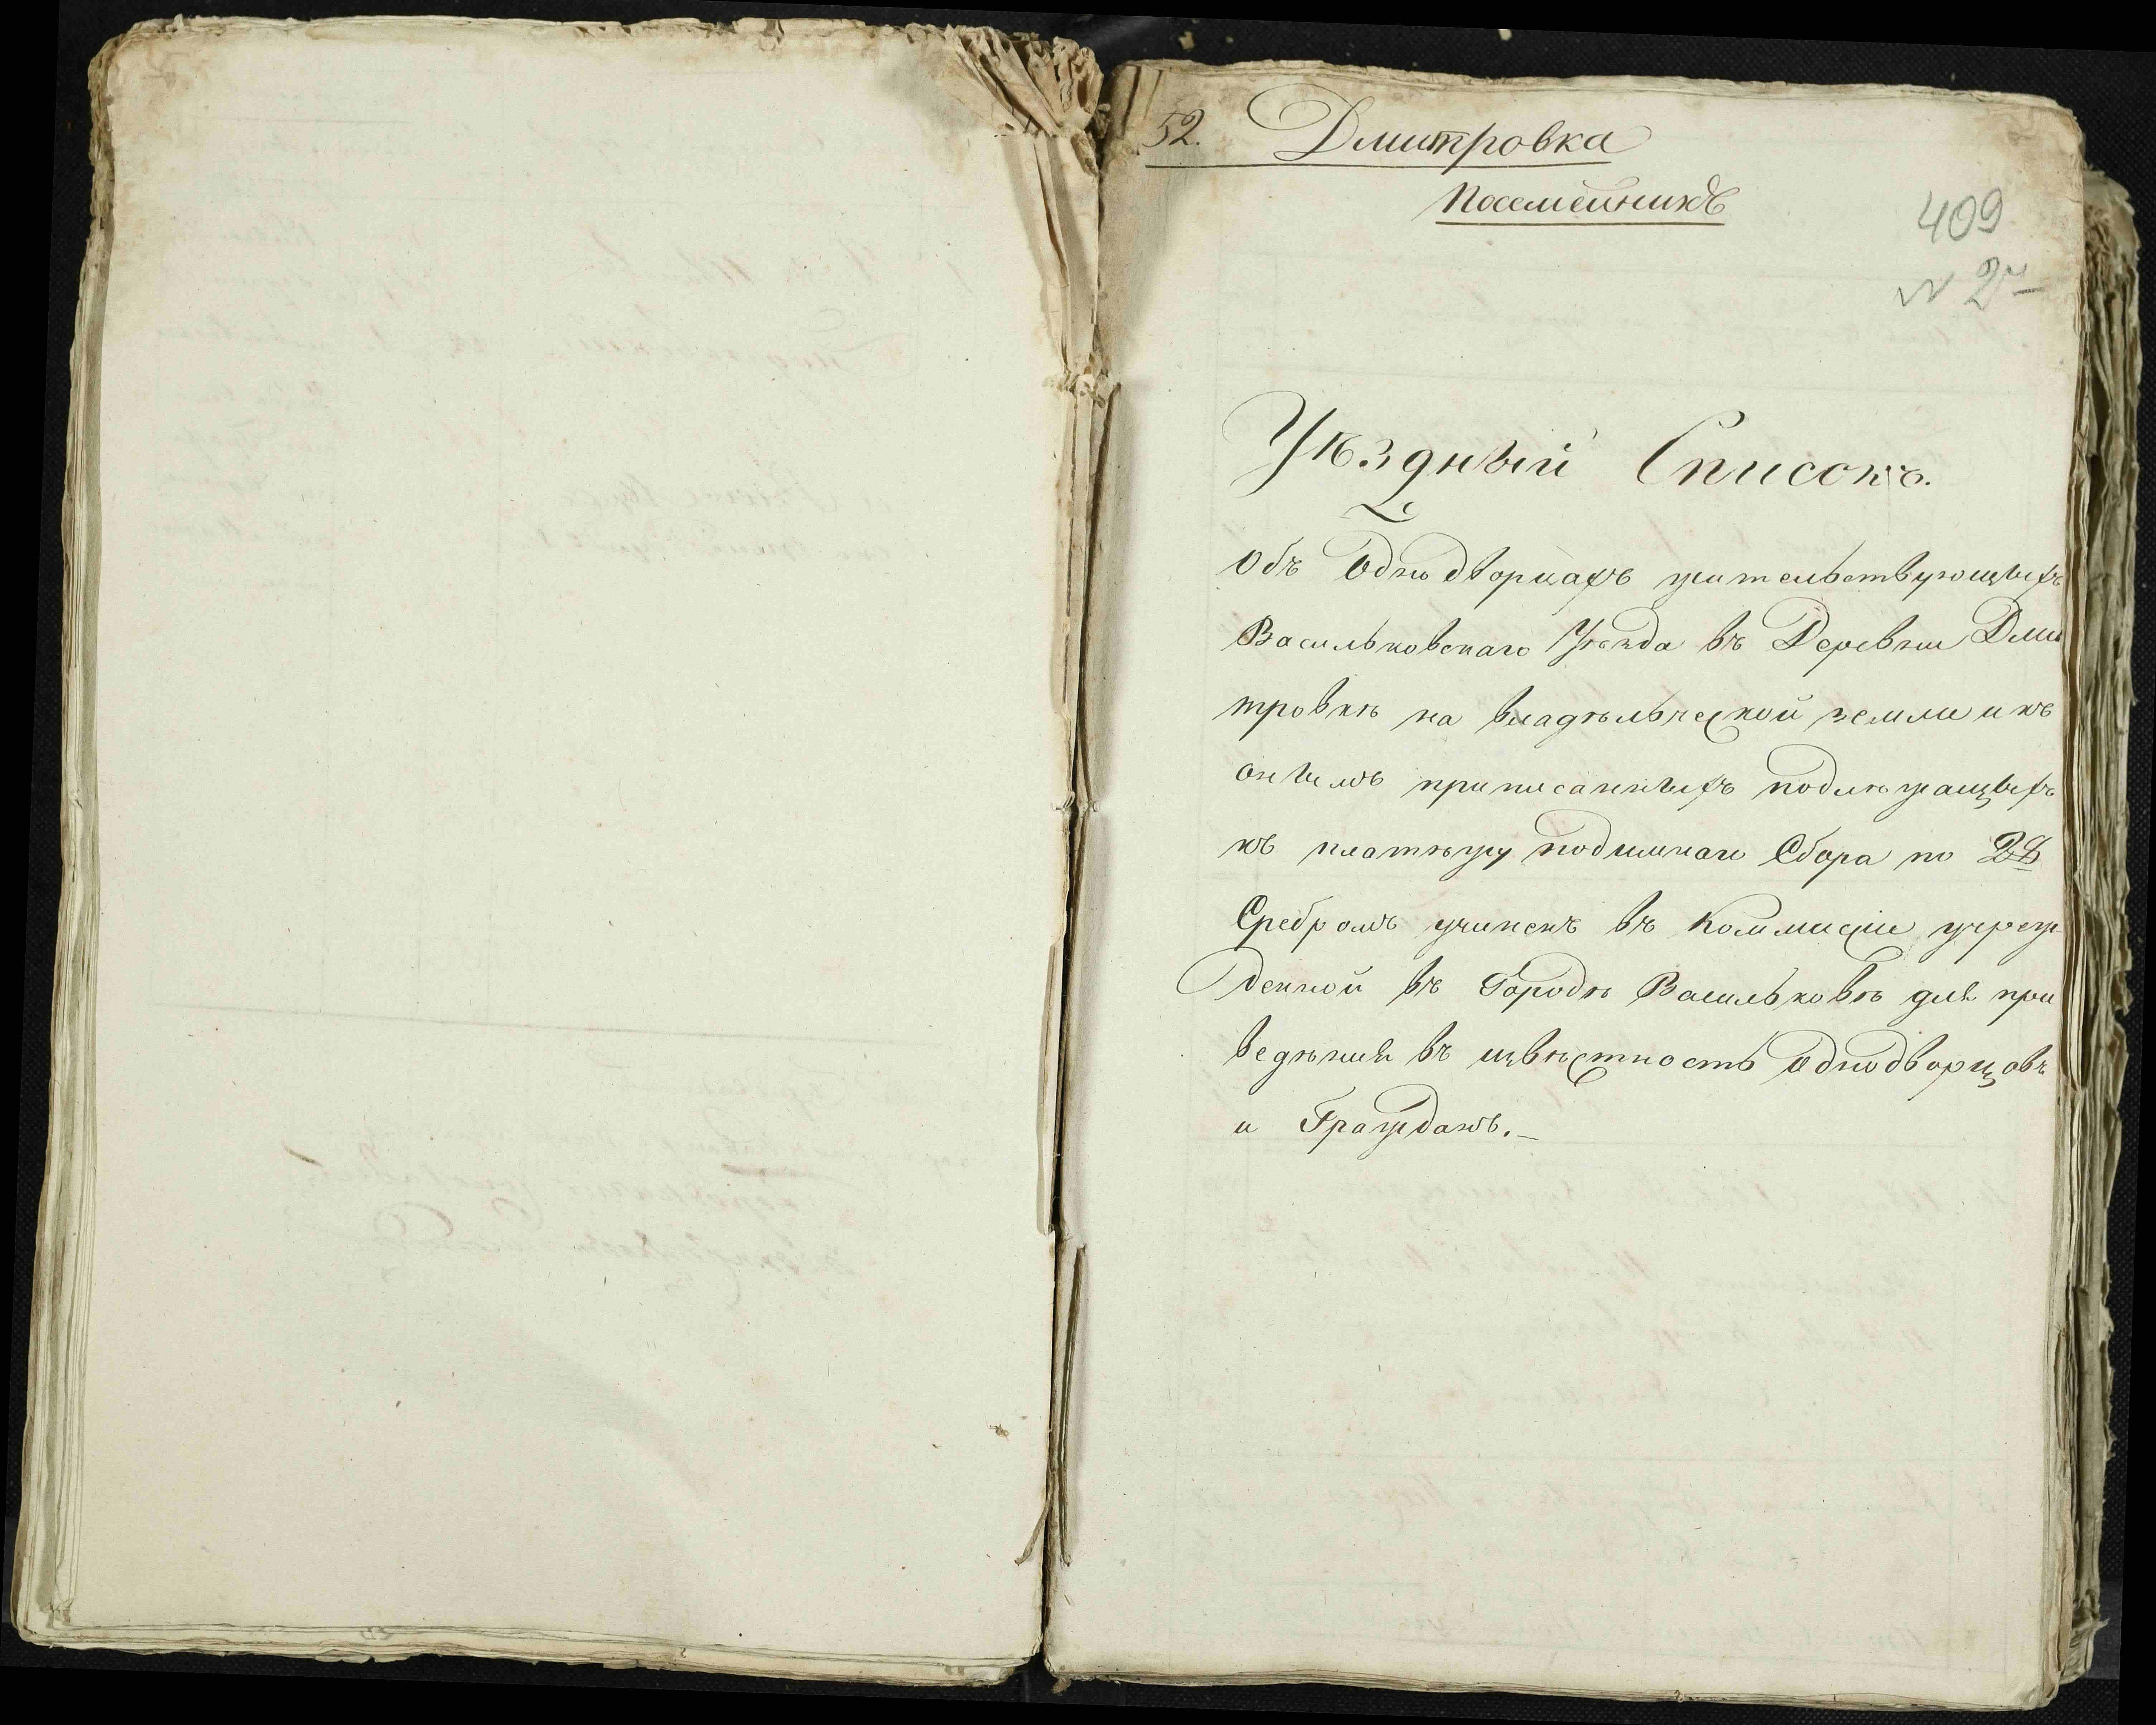 52. Дмитровка
Посемейникъ
409
N 2й
Уѣздный Списокъ.
Объ Однодворцахъ жительствующыхъ
Васильковскаго Уѣзда въ Деревни Дми
тровкѣ на владѣльческой земли и къ
онымъ приписанныхъ подлѣжащыхъ
къ платѣжу подымнаго Сбора по
Сребромъ учиненъ въ Коммисіи учреж
денной въ Городѣ Васильковѣ для при
ведѣнія въ извѣстность Однодворцовъ
и Гражданъ.